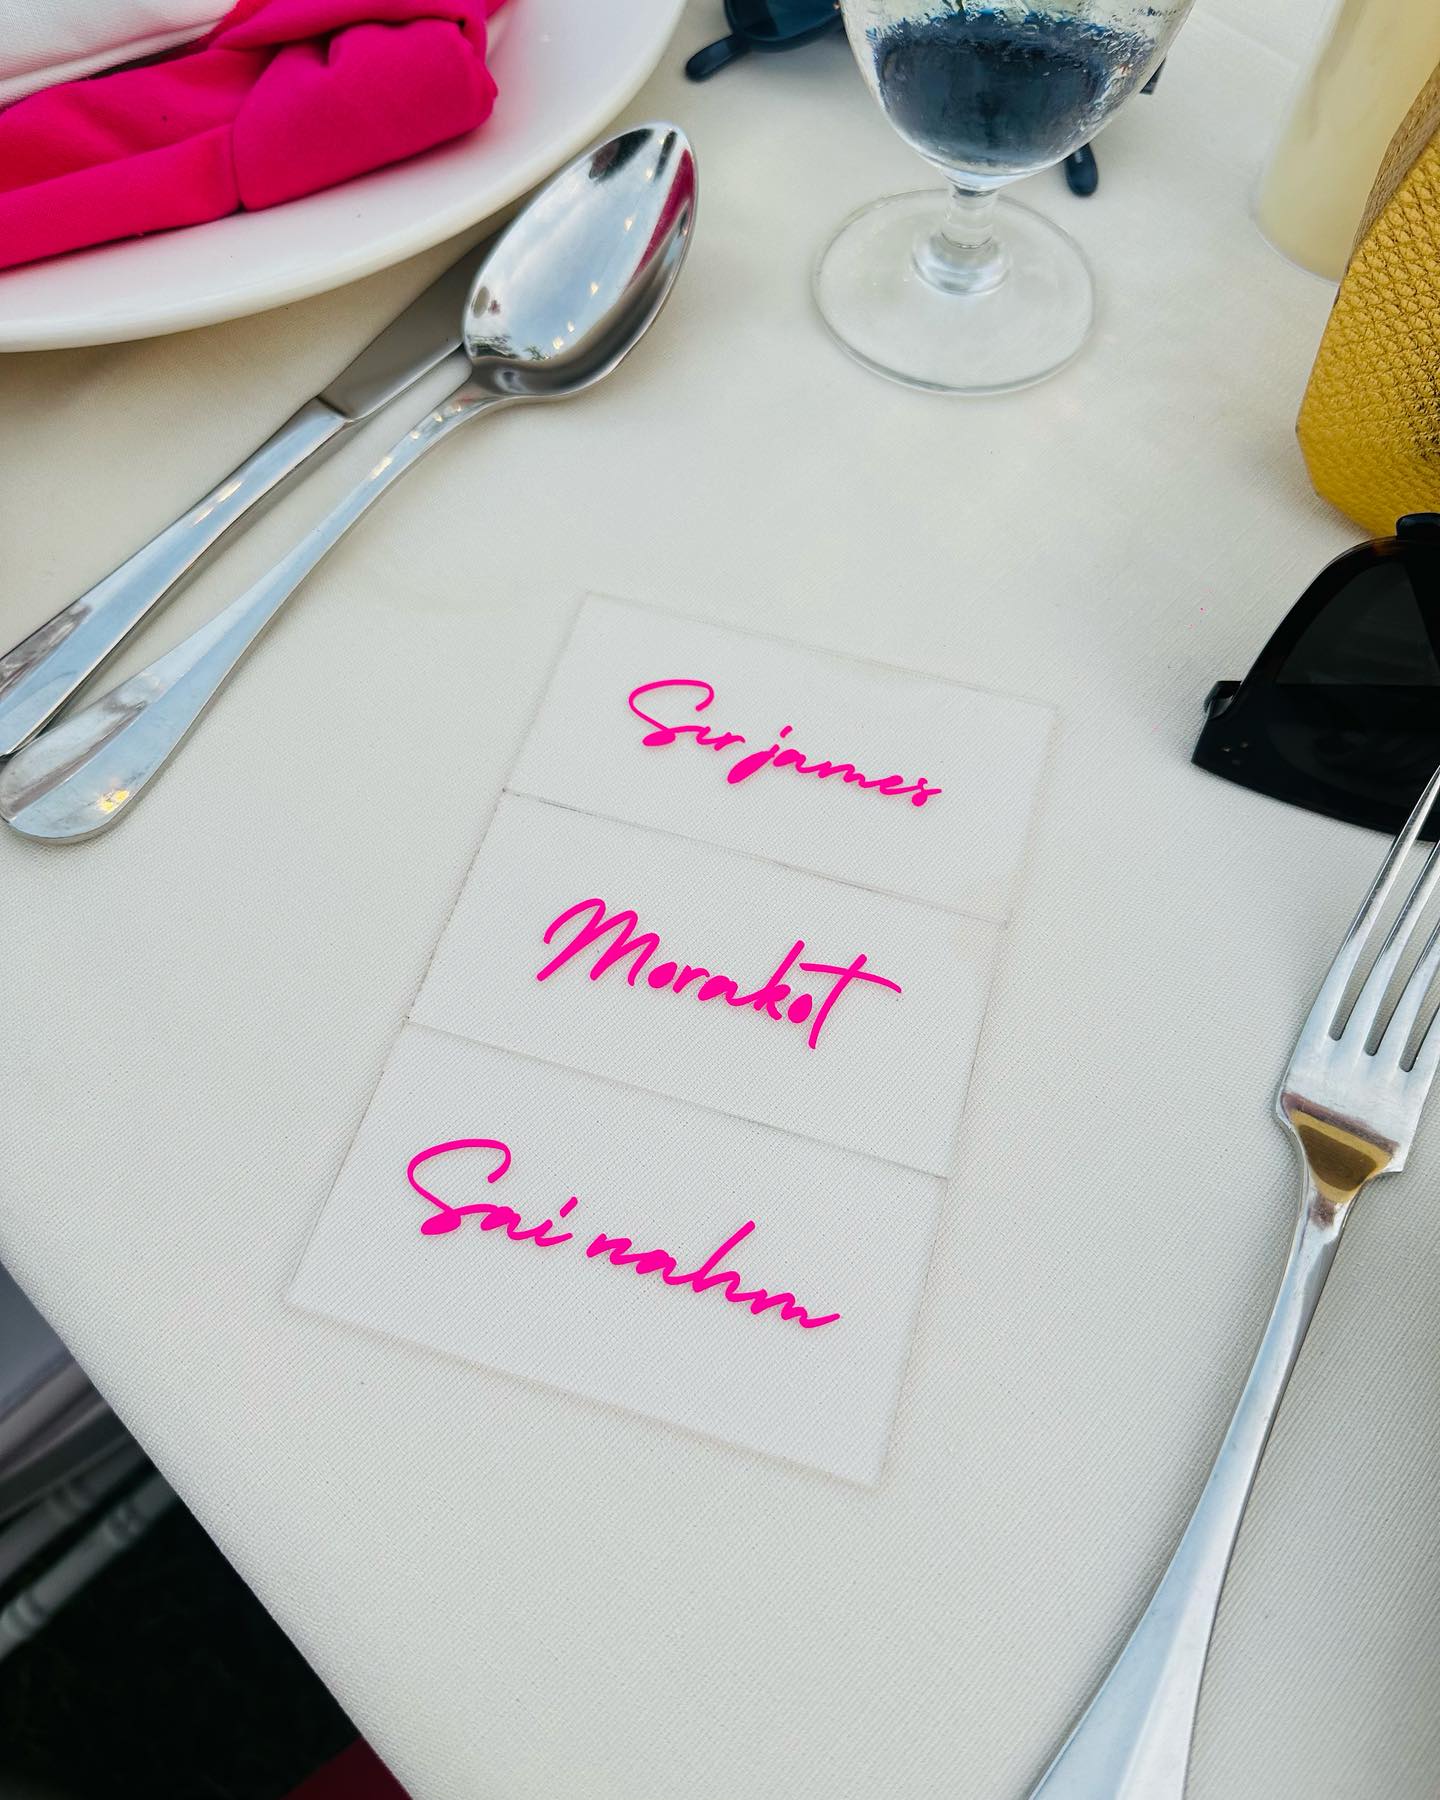 Sir james
Morakot
Sai nahm